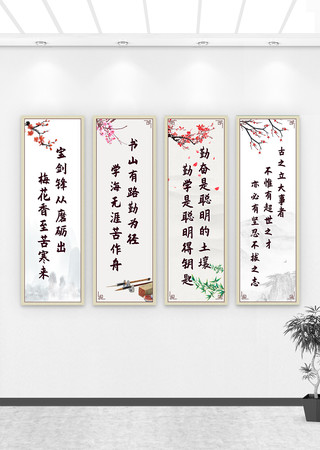 宝剑锋从磨砺出
梅花香至苦寒来
书山有路勤为径
学海无涯苦作舟
勤奋是聪明的土壤
勤学是聪明得钥匙
古之立大事者
不惟有超世之才
亦必有坚忍不拔之志